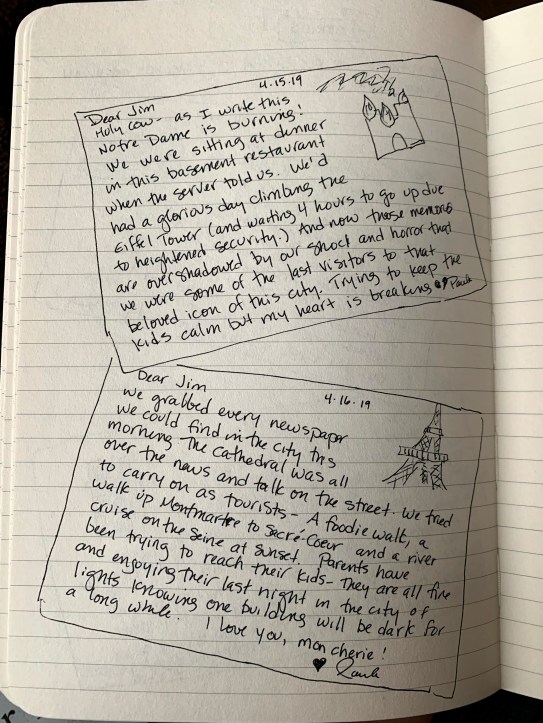 4.15.19
Dear Jim
Holy cow - as I write this
Notre Dame is burning!
We were sitting at dinner
in this basement restaurant
when the server told us. We'd
had a glorious day climbing the
Eiffel Tower (and waiting 4 hours to go up due
to heightened security.) And now those memories
are overshadowed by our shock and horror that
we were some of the last visitors to that
beloved icon of this city. Trying to keep the
kids calm but my heart is breaking ♥ Paula
Dear Jim
4.16.19
we grabbed every newspaper
we could find in the city this
morning The cathedral was all
over the news and talk on the street. We tried
to carry on as tourists - A foodie walk, a
walk up Montmartre to Sacré-Coeur and a river
cruise on the Seine at sunset. Parents have
been trying to reach their kids - They are all fine
and enjoying their last night in the city of
lights knowing one building will be dark for
a long while. I love you, mon cherie!
♥ Paula